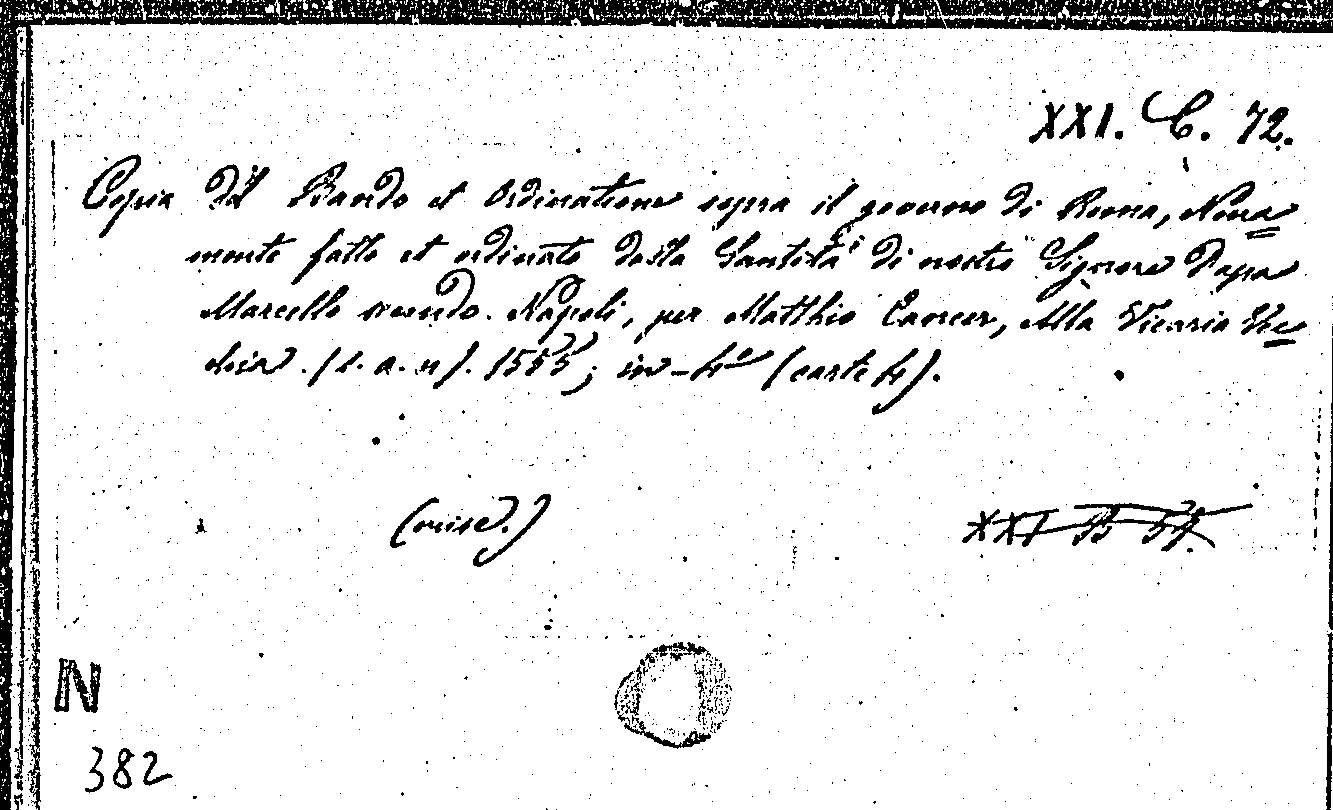 XXI. C. 72.
Copia dal Bando et Ordinatione sopra il governo di Roma, Nova
mente fatto et ordinato dalla Santità di nostro Signore Papa
Marcello secondo. Napoli, per Matthio Cancer, Alla Vicaria Ve
chia. (s. a. n). 1555; in-4º (carte 4).
(misc.)
XXI B 57
N
382